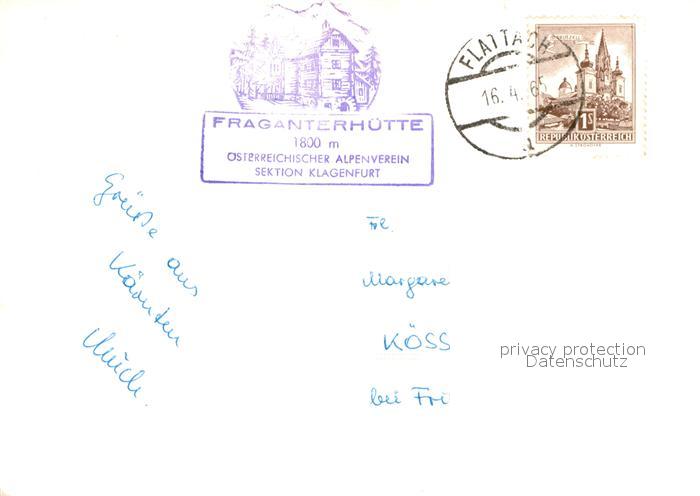 FRAGANTERHÜTTE
1800 m
ÖSTERREICHISCHER ALPENVEREIN
SEKTION KLAGENFURT
FLATTACH
16. 4. 65
1S
REPUBLIK ÖSTERREICH
Grüße aus
Kärnten
Frl.
Margare
KÖSS
bei Fri
privacy protection
Datenschutz